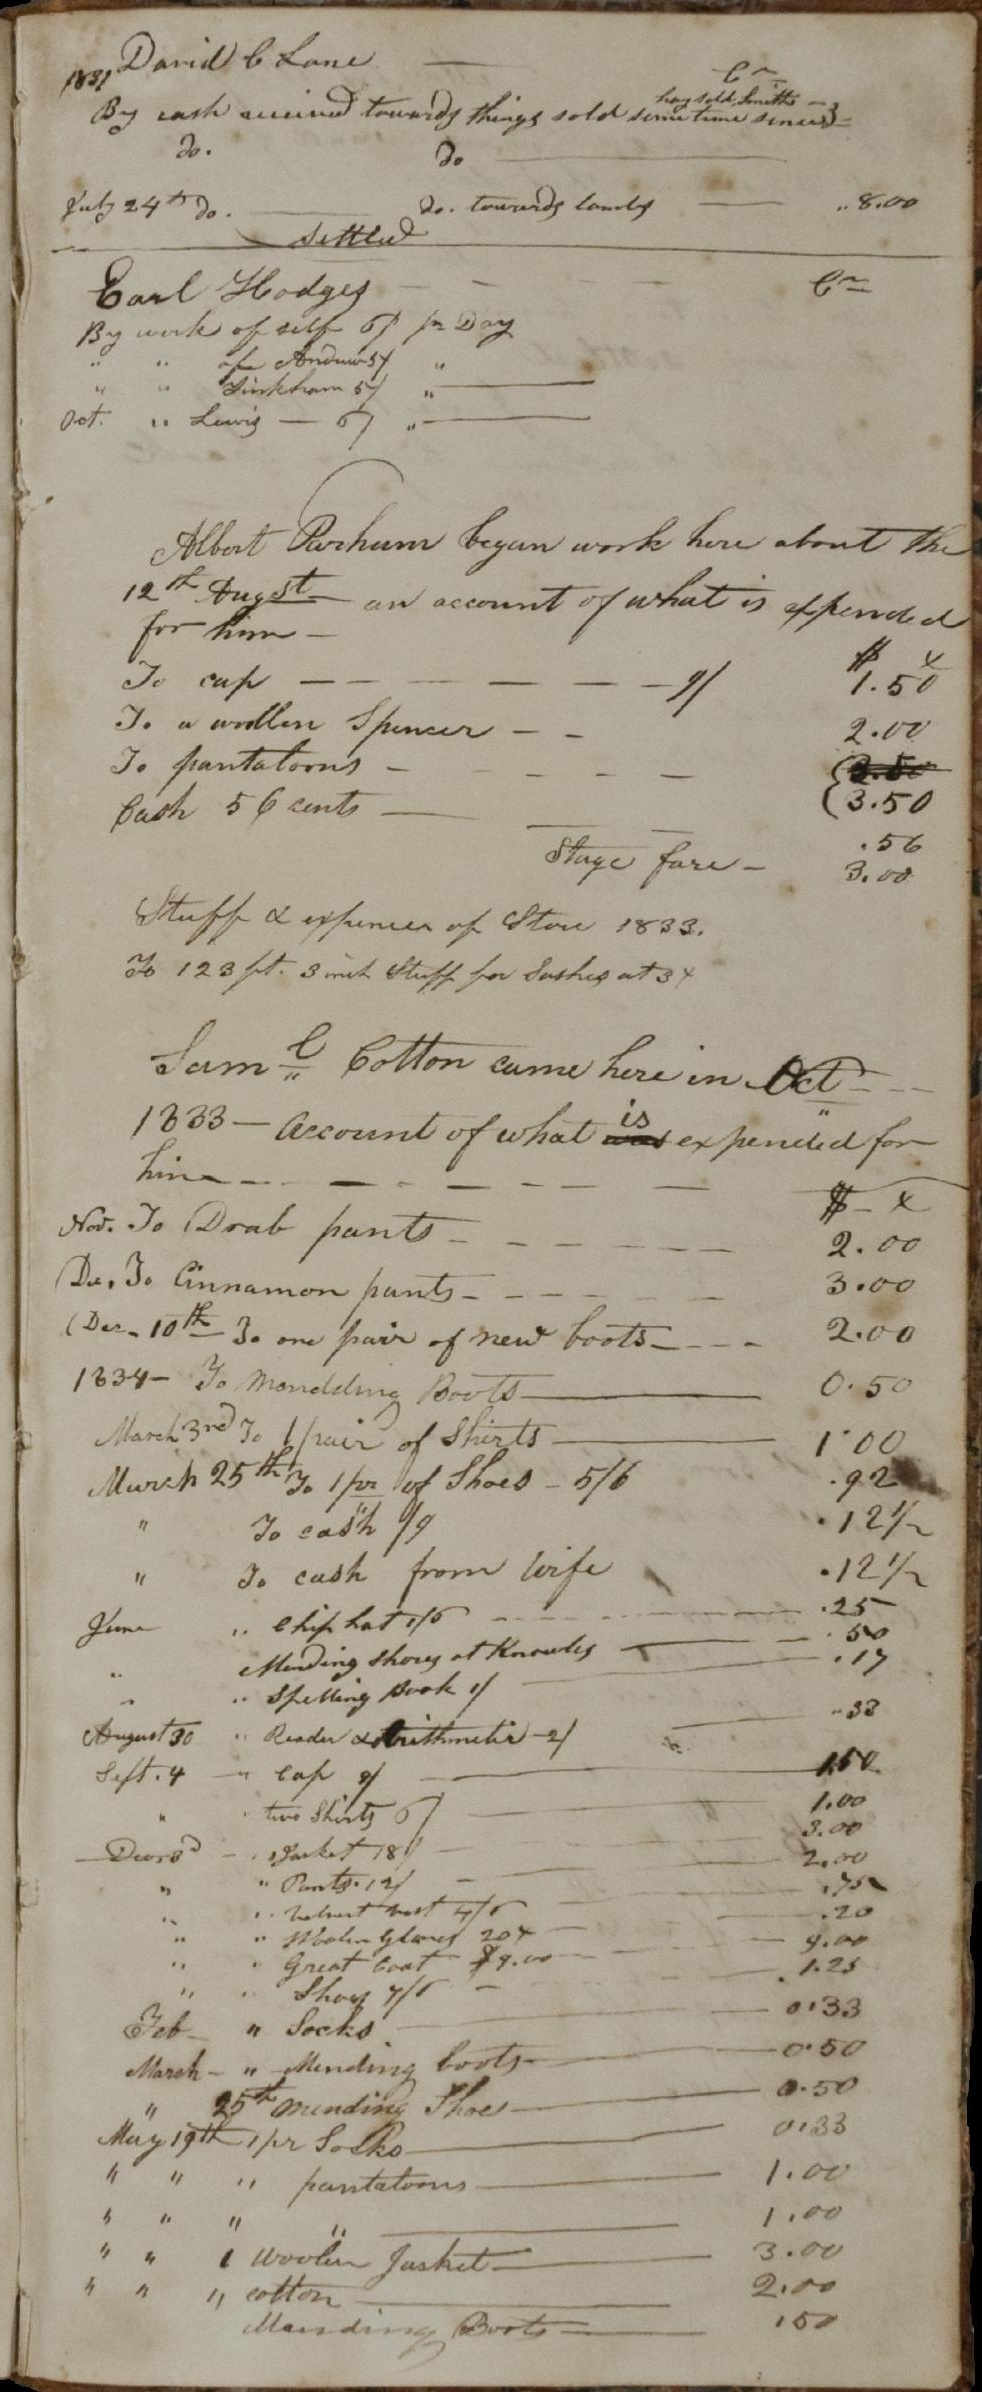 1831 David C Lane — Cr
hay sold Smiths —
By cash received towards things sold some time since —
do. do —
July 24th do. — do. towards lambs — .. 8.00
Settled
Earl Hodges - - - Cr
By work of self 6/ pr Day
" " of Andrew 5/ "
" " Tinkham 5/ " —
Oct. " Lewis — 6/ " —
Albert Parhum began work here about the
12th Augst — an account of what is expended
for him —
$ x
To cap — — — — — — — 9/ 1.50
To a woollen Spencer — — 2.00
To pantaloons — — — — — 3.50
3.50
Cash 56 cents — — — .56
Stage fare — 3.00
Stuff & expences of Store 1833.
To 123 ft. 3 inch Stuff for Sashes at 3x
Saml Cotton came here in Oct — — —
1833 — Account of what was is expended for
him — — — — — — — —
$ — x
Nov. To Drab pants — — — — — — 2.00
De. To Cinnamon pants — — — — — — 3.00
Dec. 10th To one pair of new boots — — — — 2.00
1834 — To Mendding Boots — 0.50
March 3rd To 1 pair of Shirts — 1.00
March 25th To 1 pr of Shoes — 5/6 .92
" To cash /9 .12 1/2
" To cash from Wife .12 1/2
June " Chip hat 1/6 — .25
" Mending Shoes at Knowles — .50
" " Spelling Book 1/ — .17
August 30 " Reader & Arithmetic — 2/ — .33
Sept. 4 — " Cap 9/ — 1.50
" " two Shirts 6/ — 1.00
Decr 3d — " Jacket 18/ — 3.00
" " Pants. 12/ — 2.00
" " Velvet vest 4/6 — .75
" " Woolen Gloves 20x — .20
" " Great Coat $9.00 — 9.00
" " Shoes 7/6 — 1.25
Feb — " Socks — 0.33
March — " Mending boots — 0.50
" 25th mending Shoes — 0.50
May 19th 1 pr Socks — 0.33
" " " pantaloons — 1.00
" " " " — 1.00
" " 1 Woolen Jacket — 3.00
" " " cotton — 2.00
Mending Boots — .50